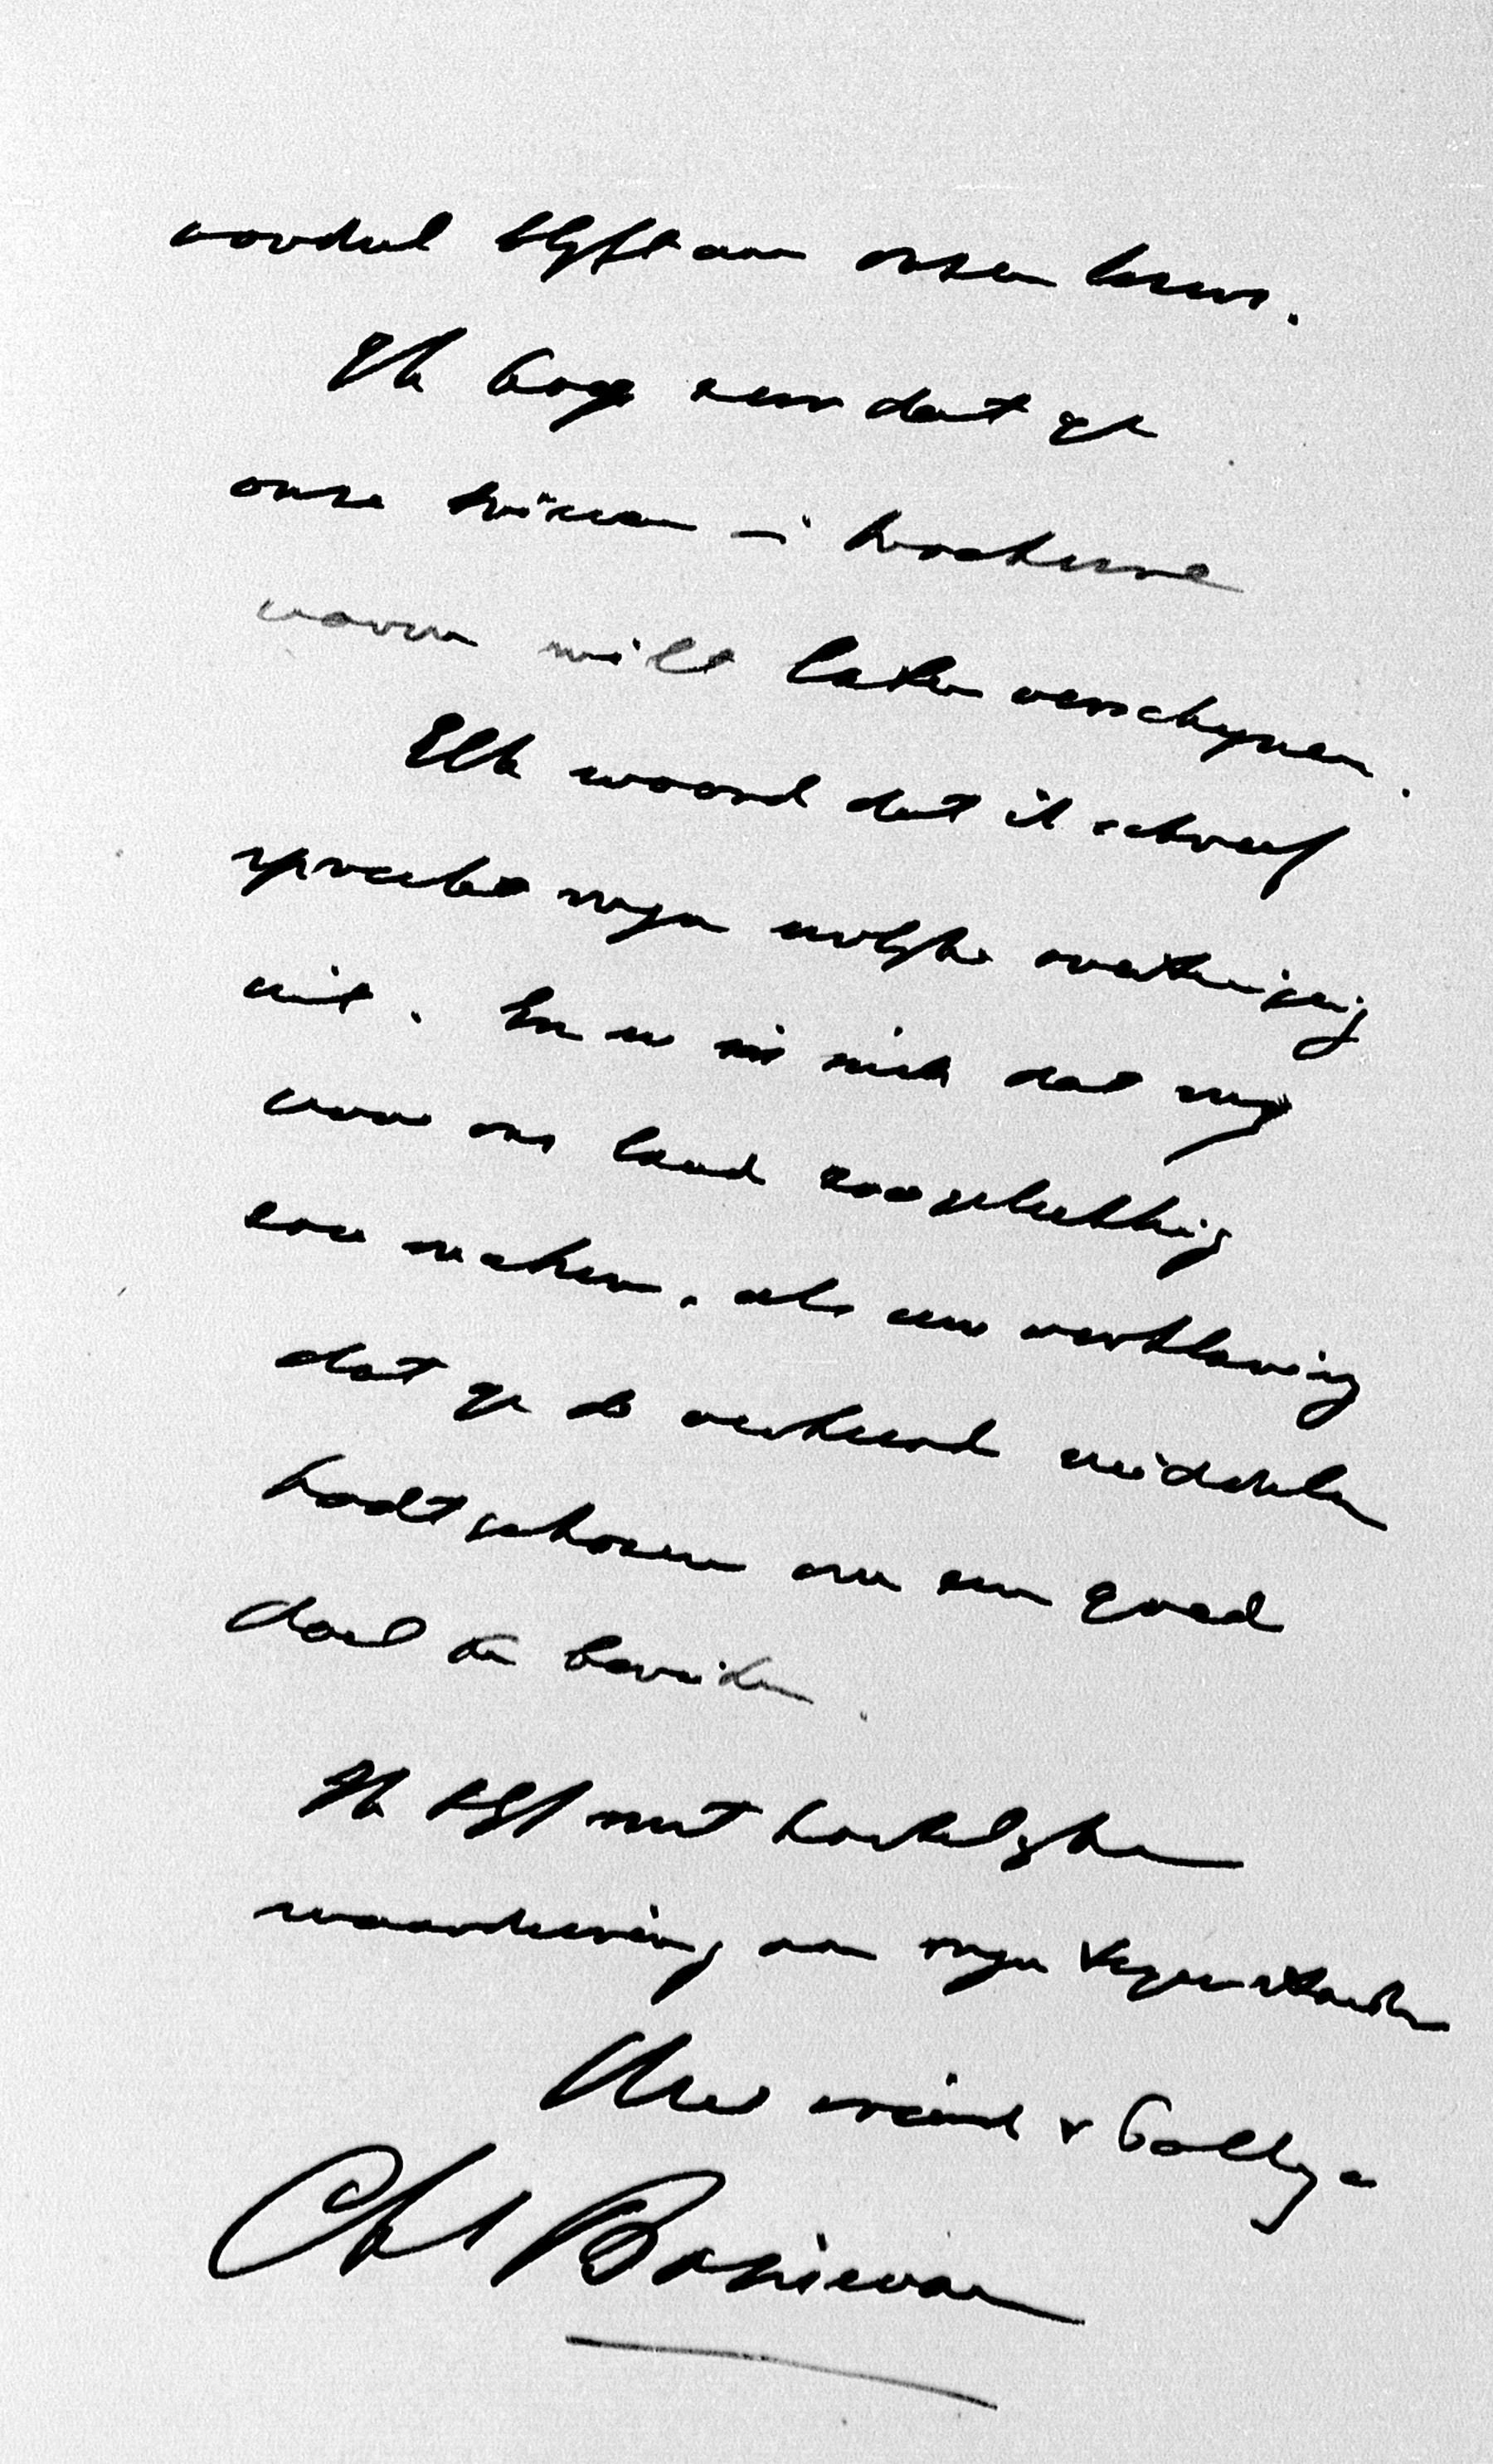 voordeel blijft aan onzen
Ik hoop zeer dat gij
onze brieven in brochure
vorm wilt laten verschijnen.
Elk woord dat ik schreef
spreekt mijn eerlijke overtuiging
uit. En er is niets dat mij
voor ons land zoo gelukkig
zou maken, als een verklaring
dat gij de verkeerde middelen
hadt gekozen om een goed
doel te bereiken.
Ik blijf met hartelijke
waardeering van mijn tegenstander
Uw vriend & Collega
Chs Boissevain